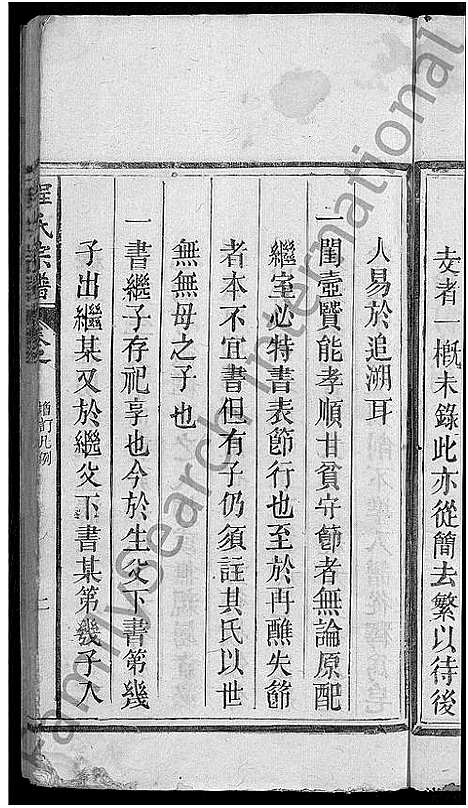 攴者一概未錄此亦從簡去繁以待後
人易於追溯耳
一閨壼賢能孝順甘貧守節者無論原配
繼室必特書表節行也至於再醮失節
者本不宜書但有子仍須註其氏以世
無無母之子也
一書繼子存祀享也今於生父下書第幾
子出繼某又於繼父下書某第幾子入
程氏宗譜 卷之 增訂凡例 二
FamilySearch International